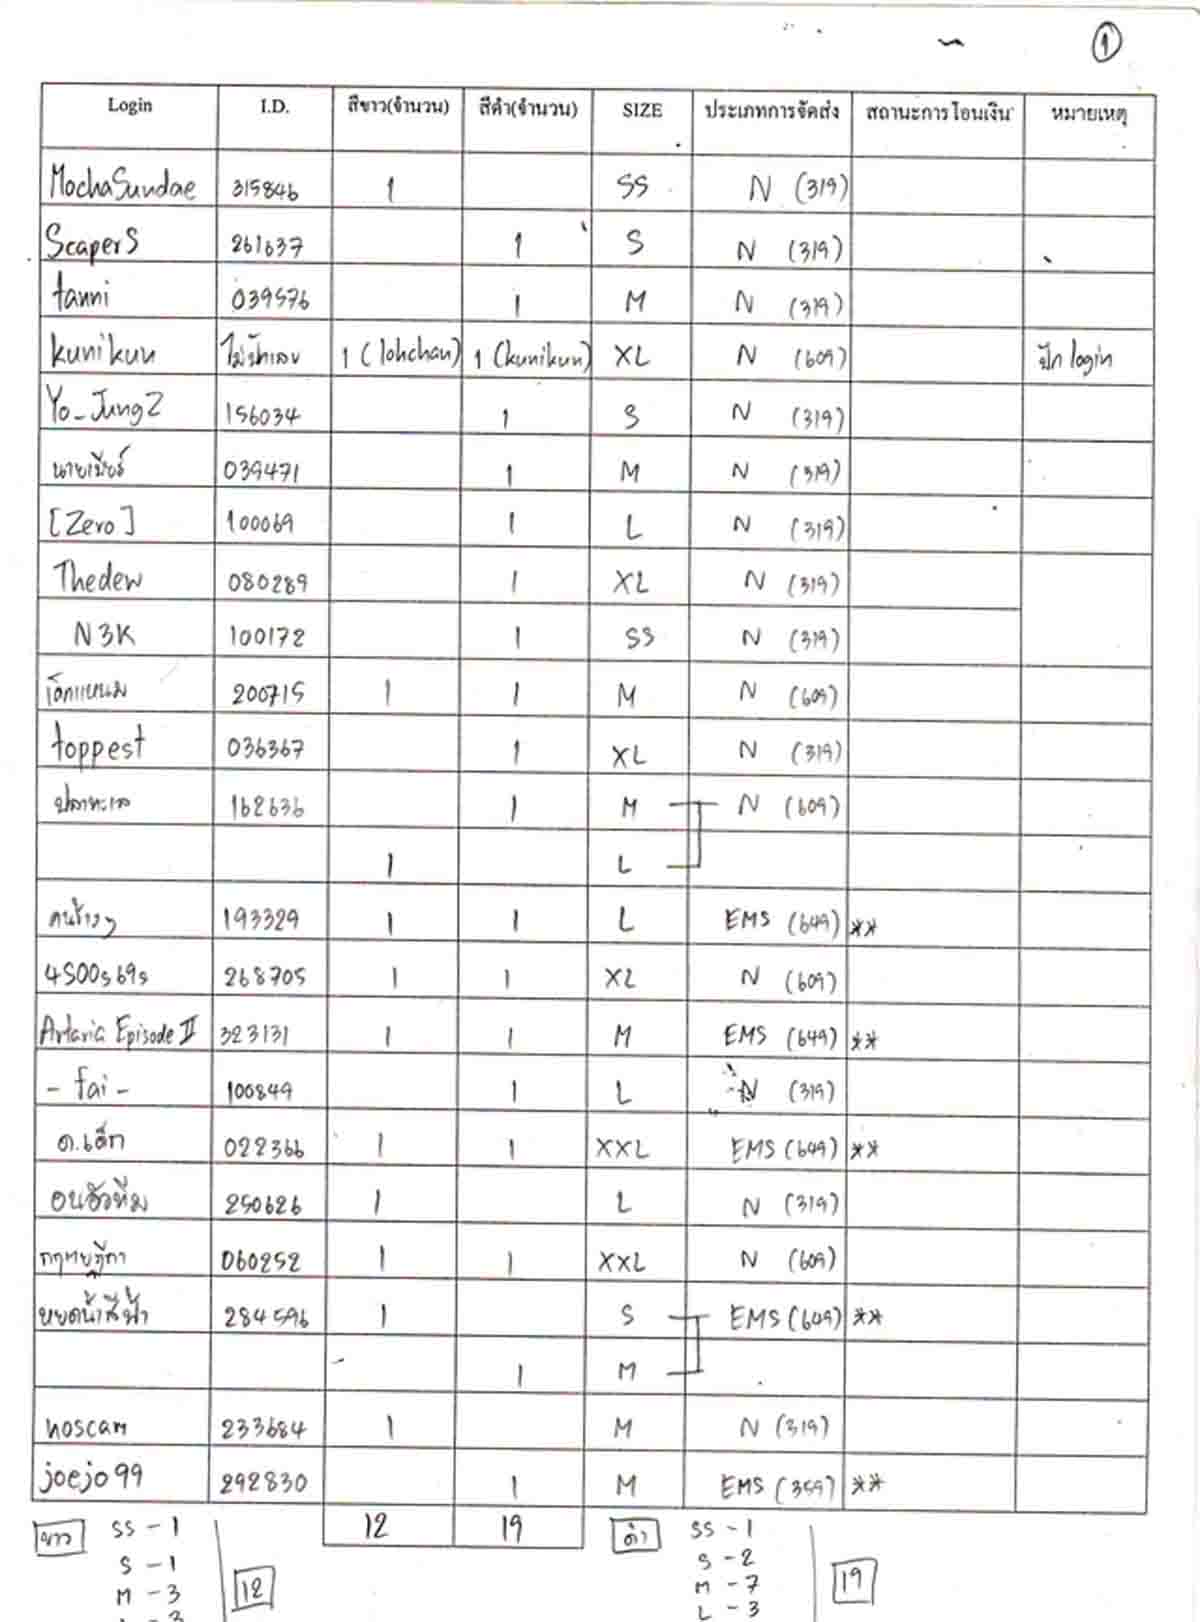 1
Login I.D. สีขาว(จำนวน) สีดำ(จำนวน) SIZE ประเภทการจัดส่ง สถานะการโอนเงิน หมายเหตุ
MochaSundae 315846 1 SS N (319)
ScaperS 261637 1 S N (319)
tanni 039576 1 M N (319)
kunikun ไม่ปักเลข 1 (lohchan) 1 (kunikun) XL N (609) ปัก login
Yo_JungZ 156034 1 S N (319)
นายเมียร์ 039471 1 M N (319)
[Zero] 100069 1 L N (319)
Thedew 080289 1 XL N (319)
N3K 100172 1 SS N (319)
เอ็กแหนม 200715 1 1 M N (609)
toppest 036367 1 XL N (319)
ปลาทะเล 162636 1 M N (609)
1 L
คนข้างๆ 193329 1 1 L EMS (649) **
4S00s69s 268705 1 1 XL N (609)
Artaria Episode II 323131 1 1 M EMS (649) **
- fai - 100849 1 L N (319)
ด.เด็ก 022366 1 1 XXL EMS (649) **
อนฮัวทีม 250626 1 L N (319)
060252 1 1 XXL N (609)
หยดน้ำสีฟ้า 284596 1 S EMS (649) **
1 M
noscam 233684 1 M N (319)
joejo99 292830 1 M EMS (359) **
12 19
ขาว SS - 1
S - 1
M - 3
12
ดำ SS - 1
S - 2
M - 7
L - 3
19